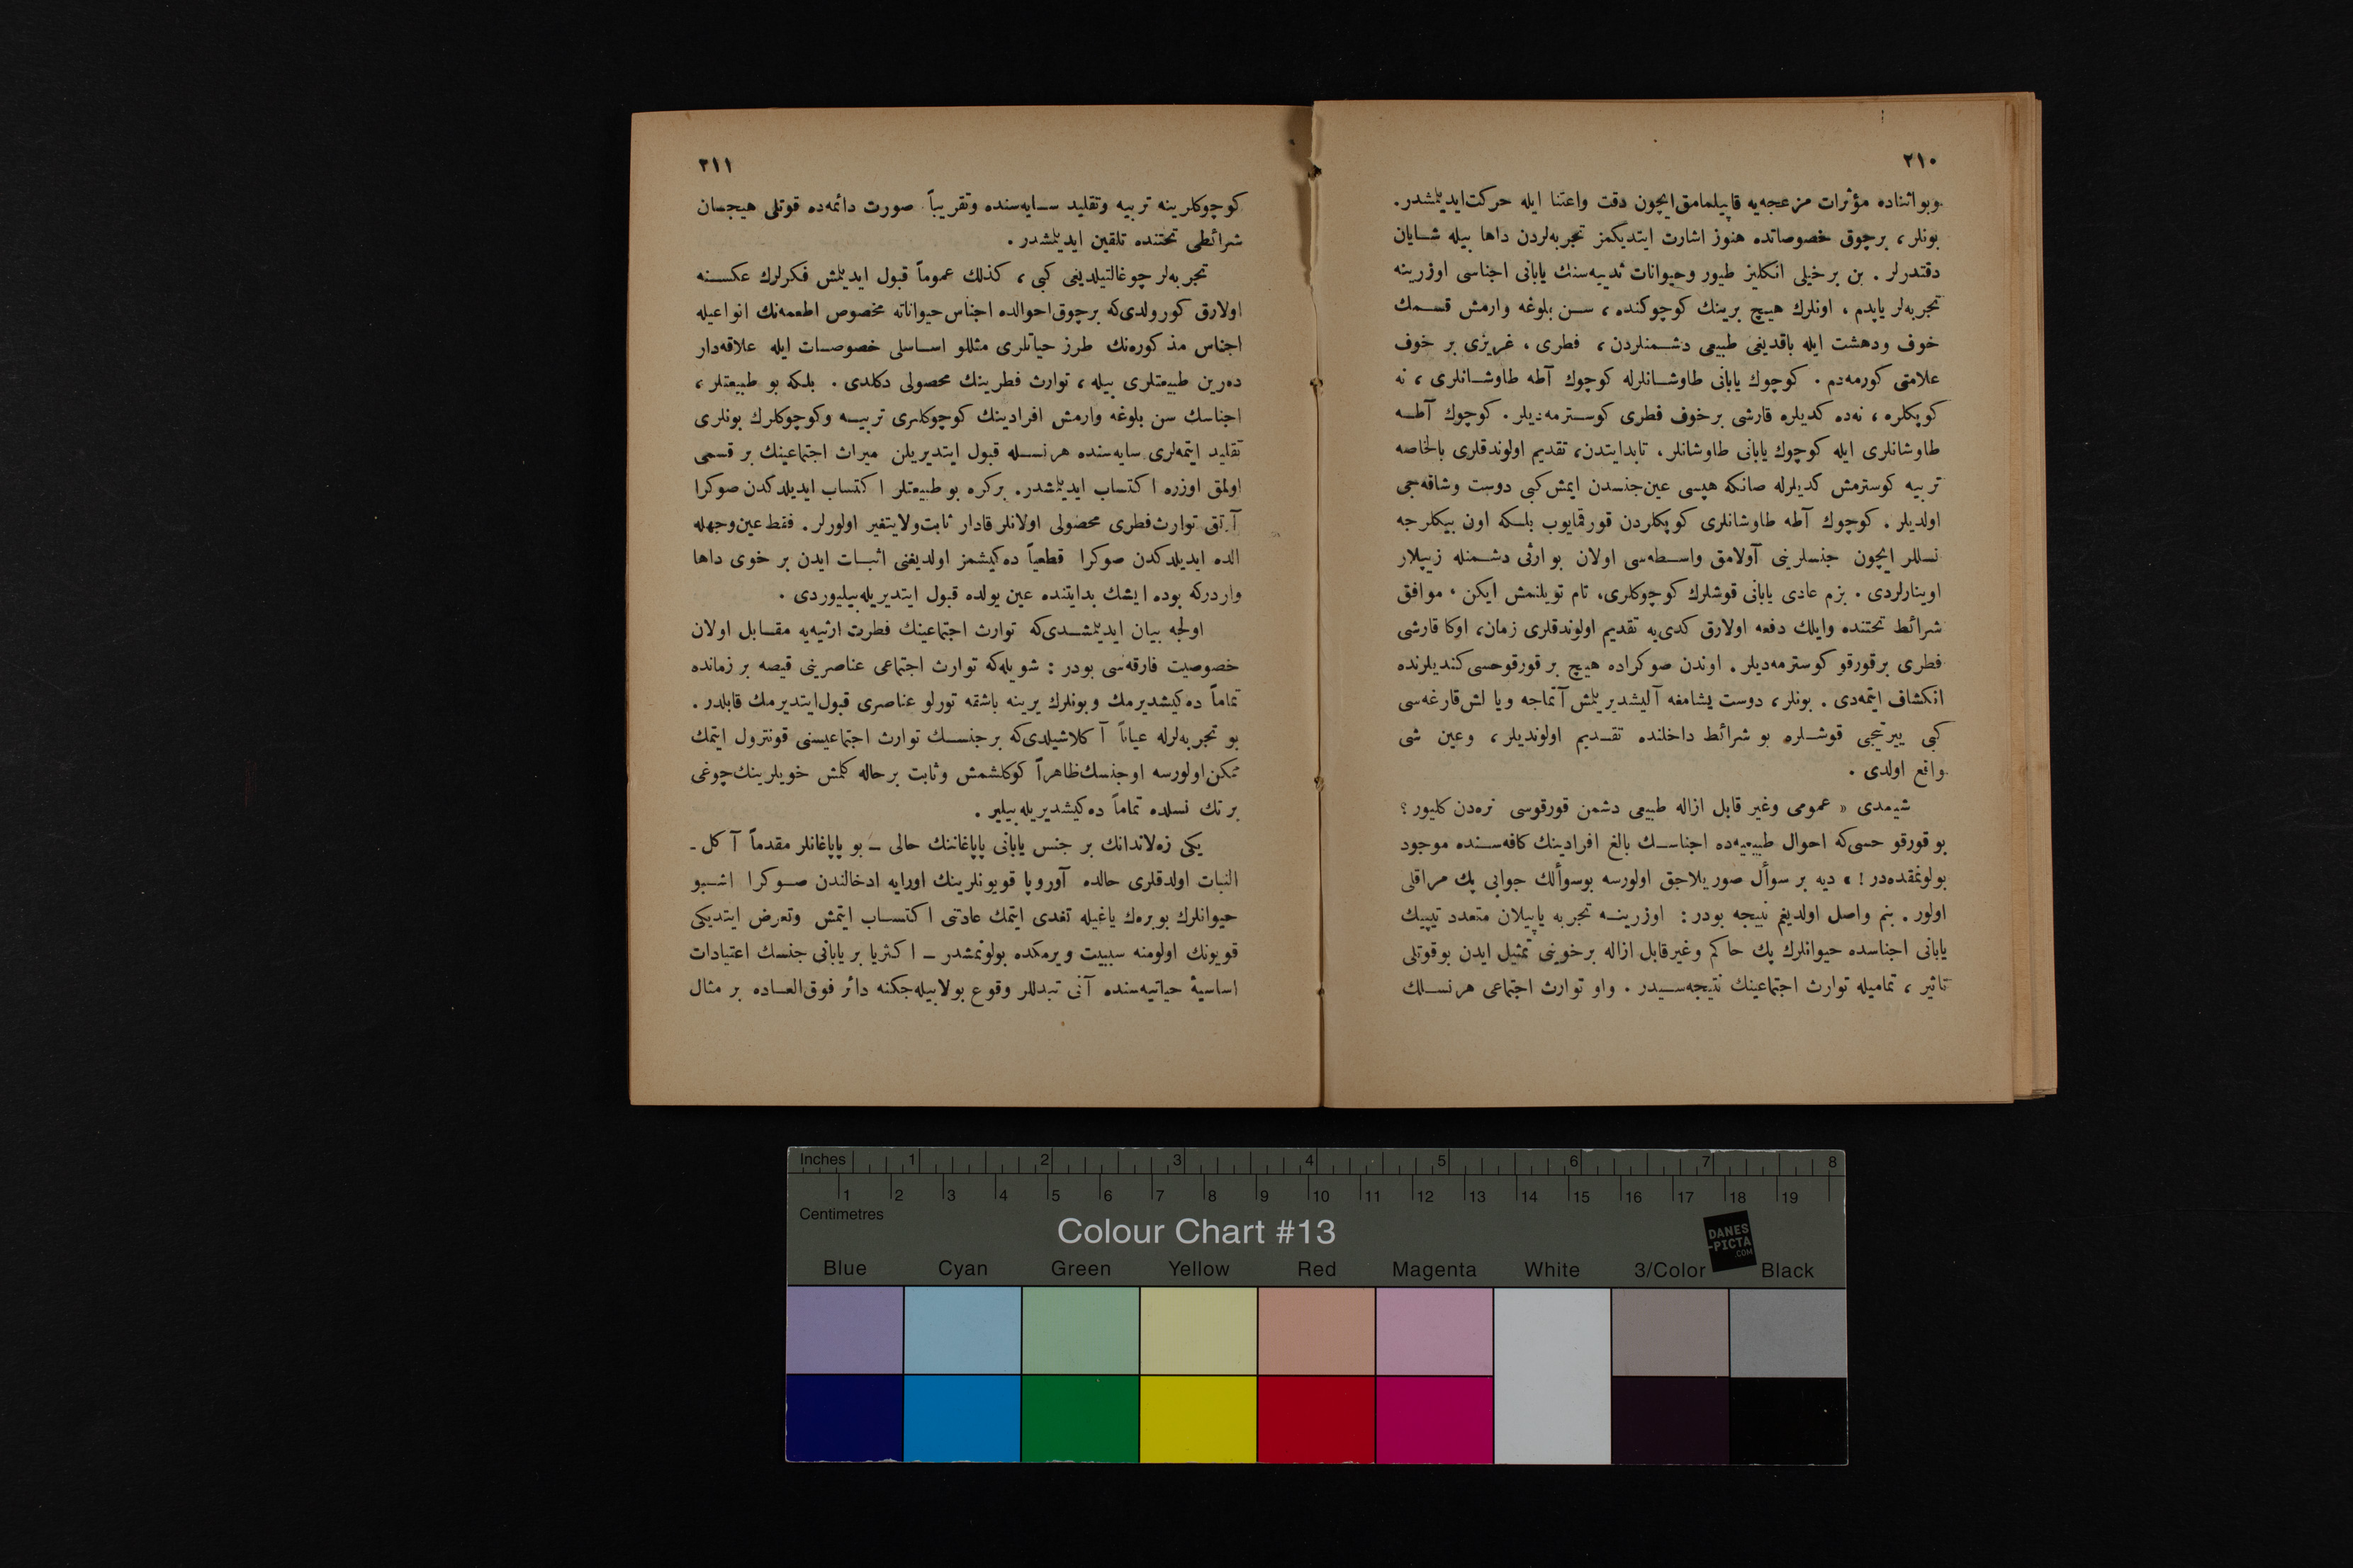 ٢١٠
وبواثناده مؤثرات مزعجه‌یه قاپیلمامق‌ایچون دقت واعتنا ایله حرکت‌ایدیلمشدر.
بونلر، برچوق خصوصاتده هنوز اشارت ایتدیگمز تجربه‌لردن داها بیله شـایان
دقتدرلر . بن برخیلی انکلیز طیور وحیوانات ثدییه‌سنك یابانی اجناسی اوزرینه
تجربه‌لر یاپدم ، اونلرك هیچ برینك كوچوكنده، سـن بلوغه وارمش قسـمك
خوف ودهشت ایله باقدیغی طبیعی دشـمنلردن، فطری ، غریزی بر خوف
علامتی كورمه‌دم . كوچوك یابانی طاوشـانلرله كوچوك آطه طاوشـانلری ، نه
كوپكلره ، نه‌ده كدیلره قارشی برخوف فطری كوسـترمه‌دیلر. كوچوك آطـه
طاوشانلری ایله كوچوك یابانی طاوشانلر، تابدایتدن، تقدیم اولوندقلری بالخاصه
تربیه كوسترمش كدیلرله صانكه هپسی عین‌جنسدن ایمش‌كبی دوست وشاقه‌جی
اولدیلر . كوچوك آطه طاوشانلری كوپكلردن قورقمایوب بلـكه اون بیكلرجه
نسللر ایچون جنسلرینی آولامق واسـطه‌سی اولان بو ارثی دشـمنله زیپلار
اوینارلردی . بزم عادی یابانی قوشلرك كوچوكلری، تام تویلنمش ایكن ، موافق
شرائط تحتنده وایلك دفعه اولارق كدی‌یه تقدیم اولوندقلری زمان، اوكا قارشی
فطری برقورقو كوسترمه‌دیلر . اوندن صوكراده هیچ بر قورقوحسی كندیلرنده
انكشاف ایتمه‌دی . بونلر، دوست یشامغه آلیشدیریلمش آتماجه ویا لش‌قارغه‌سی
كبی ییرتیجی قوشـلره بو شرائط داخلنده تقـدیم اولوندیلر، وعین شی
واقع اولدی .
شیمدی « عمومی وغیر قابل ازاله طبیعی دشمن قورقوسی نره‌دن كلیور؟
بو قورقو حسی‌كه احوال طبیعیه‌ده اجناسـك بالغ افرادینك كافه‌سـنده موجود
بولونمقده‌در ! » دیه بر سوأل صوریلاجق اولورسه بوسوألك جوابی پك مراقلی
اولور . بنم واصل اولدیغم نتیجه بودر : اوزرینـه تجربه یاپیلان متعدد تیپیك
یابانی اجناسده حیوانلرك پك حاكم وغیرقابل ازاله برخوینی تمثیل ایدن بوقوتلی
تاثیر ، تمامیله توارث اجتماعینك نتیجه‌سـیدر . واو توارث اجتماعی هرنسـلك
٢١١
كوچوكلرینه تربیه وتقلید سـایه‌سنده وتقریباً صورت دائمه‌ده قوتلی هیجـان
شرائطی تحتنده تلقین ایدیلمشدر .
تجربه‌لر چوغالتیلدیغی كبی ، كذلك عموماً قبول ایدیلمش فكرلرك عكسـنه
اولارق كورولدی‌كه برچوق‌احوالده اجناس‌حیواناته مخصوص اطعمه‌نك انواعیله
اجناس مذكوره‌نك طرز حیاتلری مثللو اسـاسلی خصوصـات ایله علاقه‌دار
ده‌رین طبیعتلری بیله ، توارث فطرینك محصولی دكلدی . بلكه بو طبیعتلر ،
اجناسك سن بلوغه وارمش افرادینك كوچوكلری تربیـه وكوچوكلرك بونلری
تقلید ایتمه‌لری سایه‌سنده هرنسـله قبول ایتدیریلن میراث اجتماعینك بر قسمی
اولمق اوزره اكتساب ایدیلمشدر. بركره بو طبیعتلر اكتساب ایدیلدكدن صوكرا
آرتق توارث‌فطری محصولی اولانلر قادار ثابت‌ولایتغیر اولورلر. فقط عین‌وجهله
الده ایدیلدكدن صوكرا قطعیاً ده‌كیشمز اولدیغنی اثبـات ایدن بر خوی داها
واردركه بوده ایشك بدایتنده عین یولده قبول ایتدیریله‌بیلیوردی .
اولجه بیان ایدیلمشـدی‌كه توارث اجتماعینك فطرت ارثیه‌یه مقـابل اولان
خصوصیت فارقه‌سی بودر : شویله‌كه توارث اجتماعی عناصرینی قیصه بر زمانده
تماماً ده‌كیشدیرمك وبونلرك یرینه باشقه تورلو عناصری قبول‌ایتدیرمك قابلدر.
بو تجربه‌لرله عیاناً آكلاشیلدی‌كه برجنسـك توارث اجتماعیسنی قونترول ایتمك
ممكن‌اولورسه اوجنسك‌ظاهراً كوكلشمش وثابت برحاله كلمش خویلرینك‌چوغی
برتك نسلده تماماً ده‌كیشدیریله‌بیلیر.
یكی زه‌لاندانك بر جنس یابانی پاپاغاننك حالی ـ بو پاپاغانلر مقدماً آكل ـ
النبات اولدقلری حالده آوروپا قویونلرینك اورایه ادخالندن صـوكرا اشـبو
حیوانلرك بوبره‌ك یاغیله تغدی ایتمك عادتنی اكتسـاب ایتمش وتعرض ایتدیكی
قویونك اولومنه سببیت ویرمكده بولونمشدر ـ اكثریا بر یابانی جنسك اعتیادات
اساسیهٔ حیاتیه‌سنده آنی تبدللر وقوع بولابیله‌جكنه دائر فوق‌العـاده بر مثال
Inches 1 2 3 4 5 6 7 8
1 2 3 4 5 6 7 8 9 10 11 12 13 14 15 16 17 18 19
Centimetres
Colour Chart #13
DANES
-PICTA
.COM
Blue Cyan Green Yellow Red Magenta White 3/Color Black